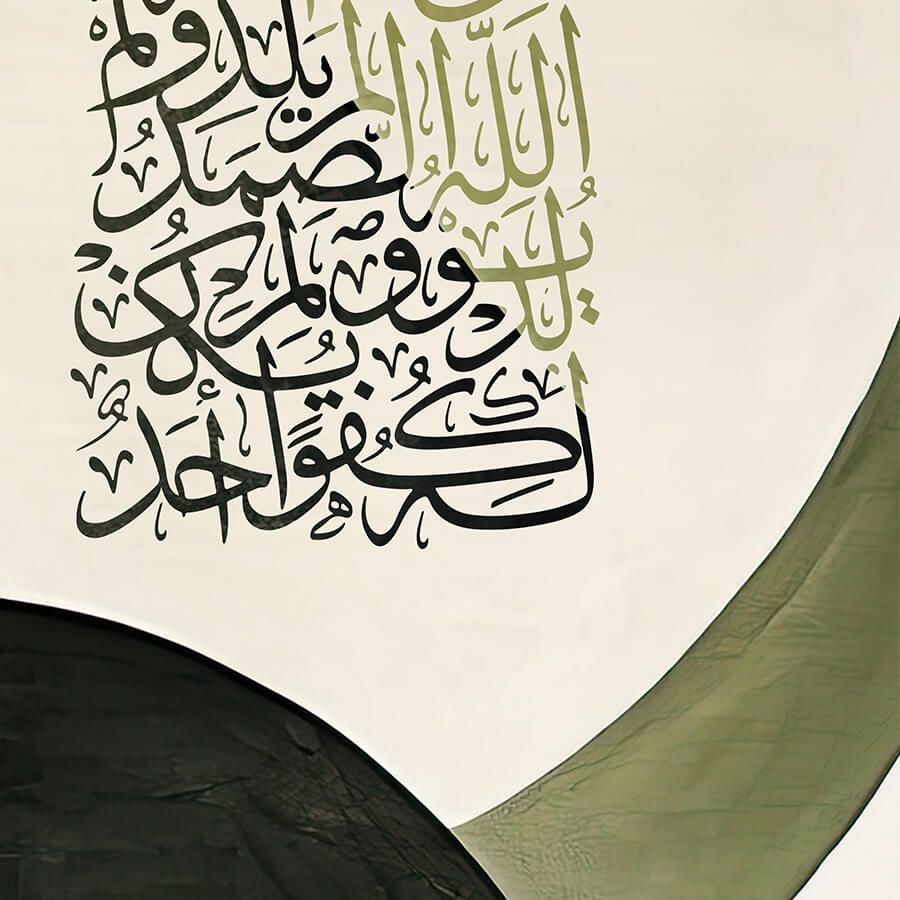 اللَّهُ الصَّمَدُ
لَمْ يَلِدْ وَلَمْ
يُولَدْ وَلَمْ يَكُنْ
لَهُ كُفُوًا أَحَدٌ